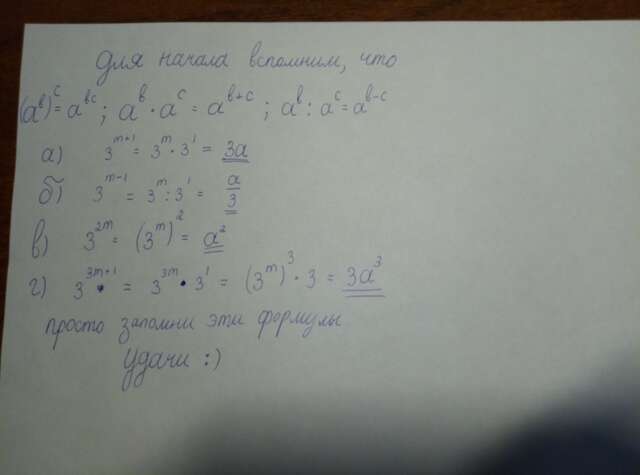 Для начала вспомним, что
(a^в)^c = a^вc; a^в · a^c = a^в+c ; a^в : a^c = a^в-c
а) 3^m+1 = 3^m · 3^1 = 3a
б) 3^m-1 = 3^m : 3^1 = a/3
в) 3^2m = (3^m)^2 = a^2
г) 3^3m+1 = 3^3m · 3^1 = (3^m)^3 · 3 = 3a^3
просто запомни эти формулы
Удачи :)